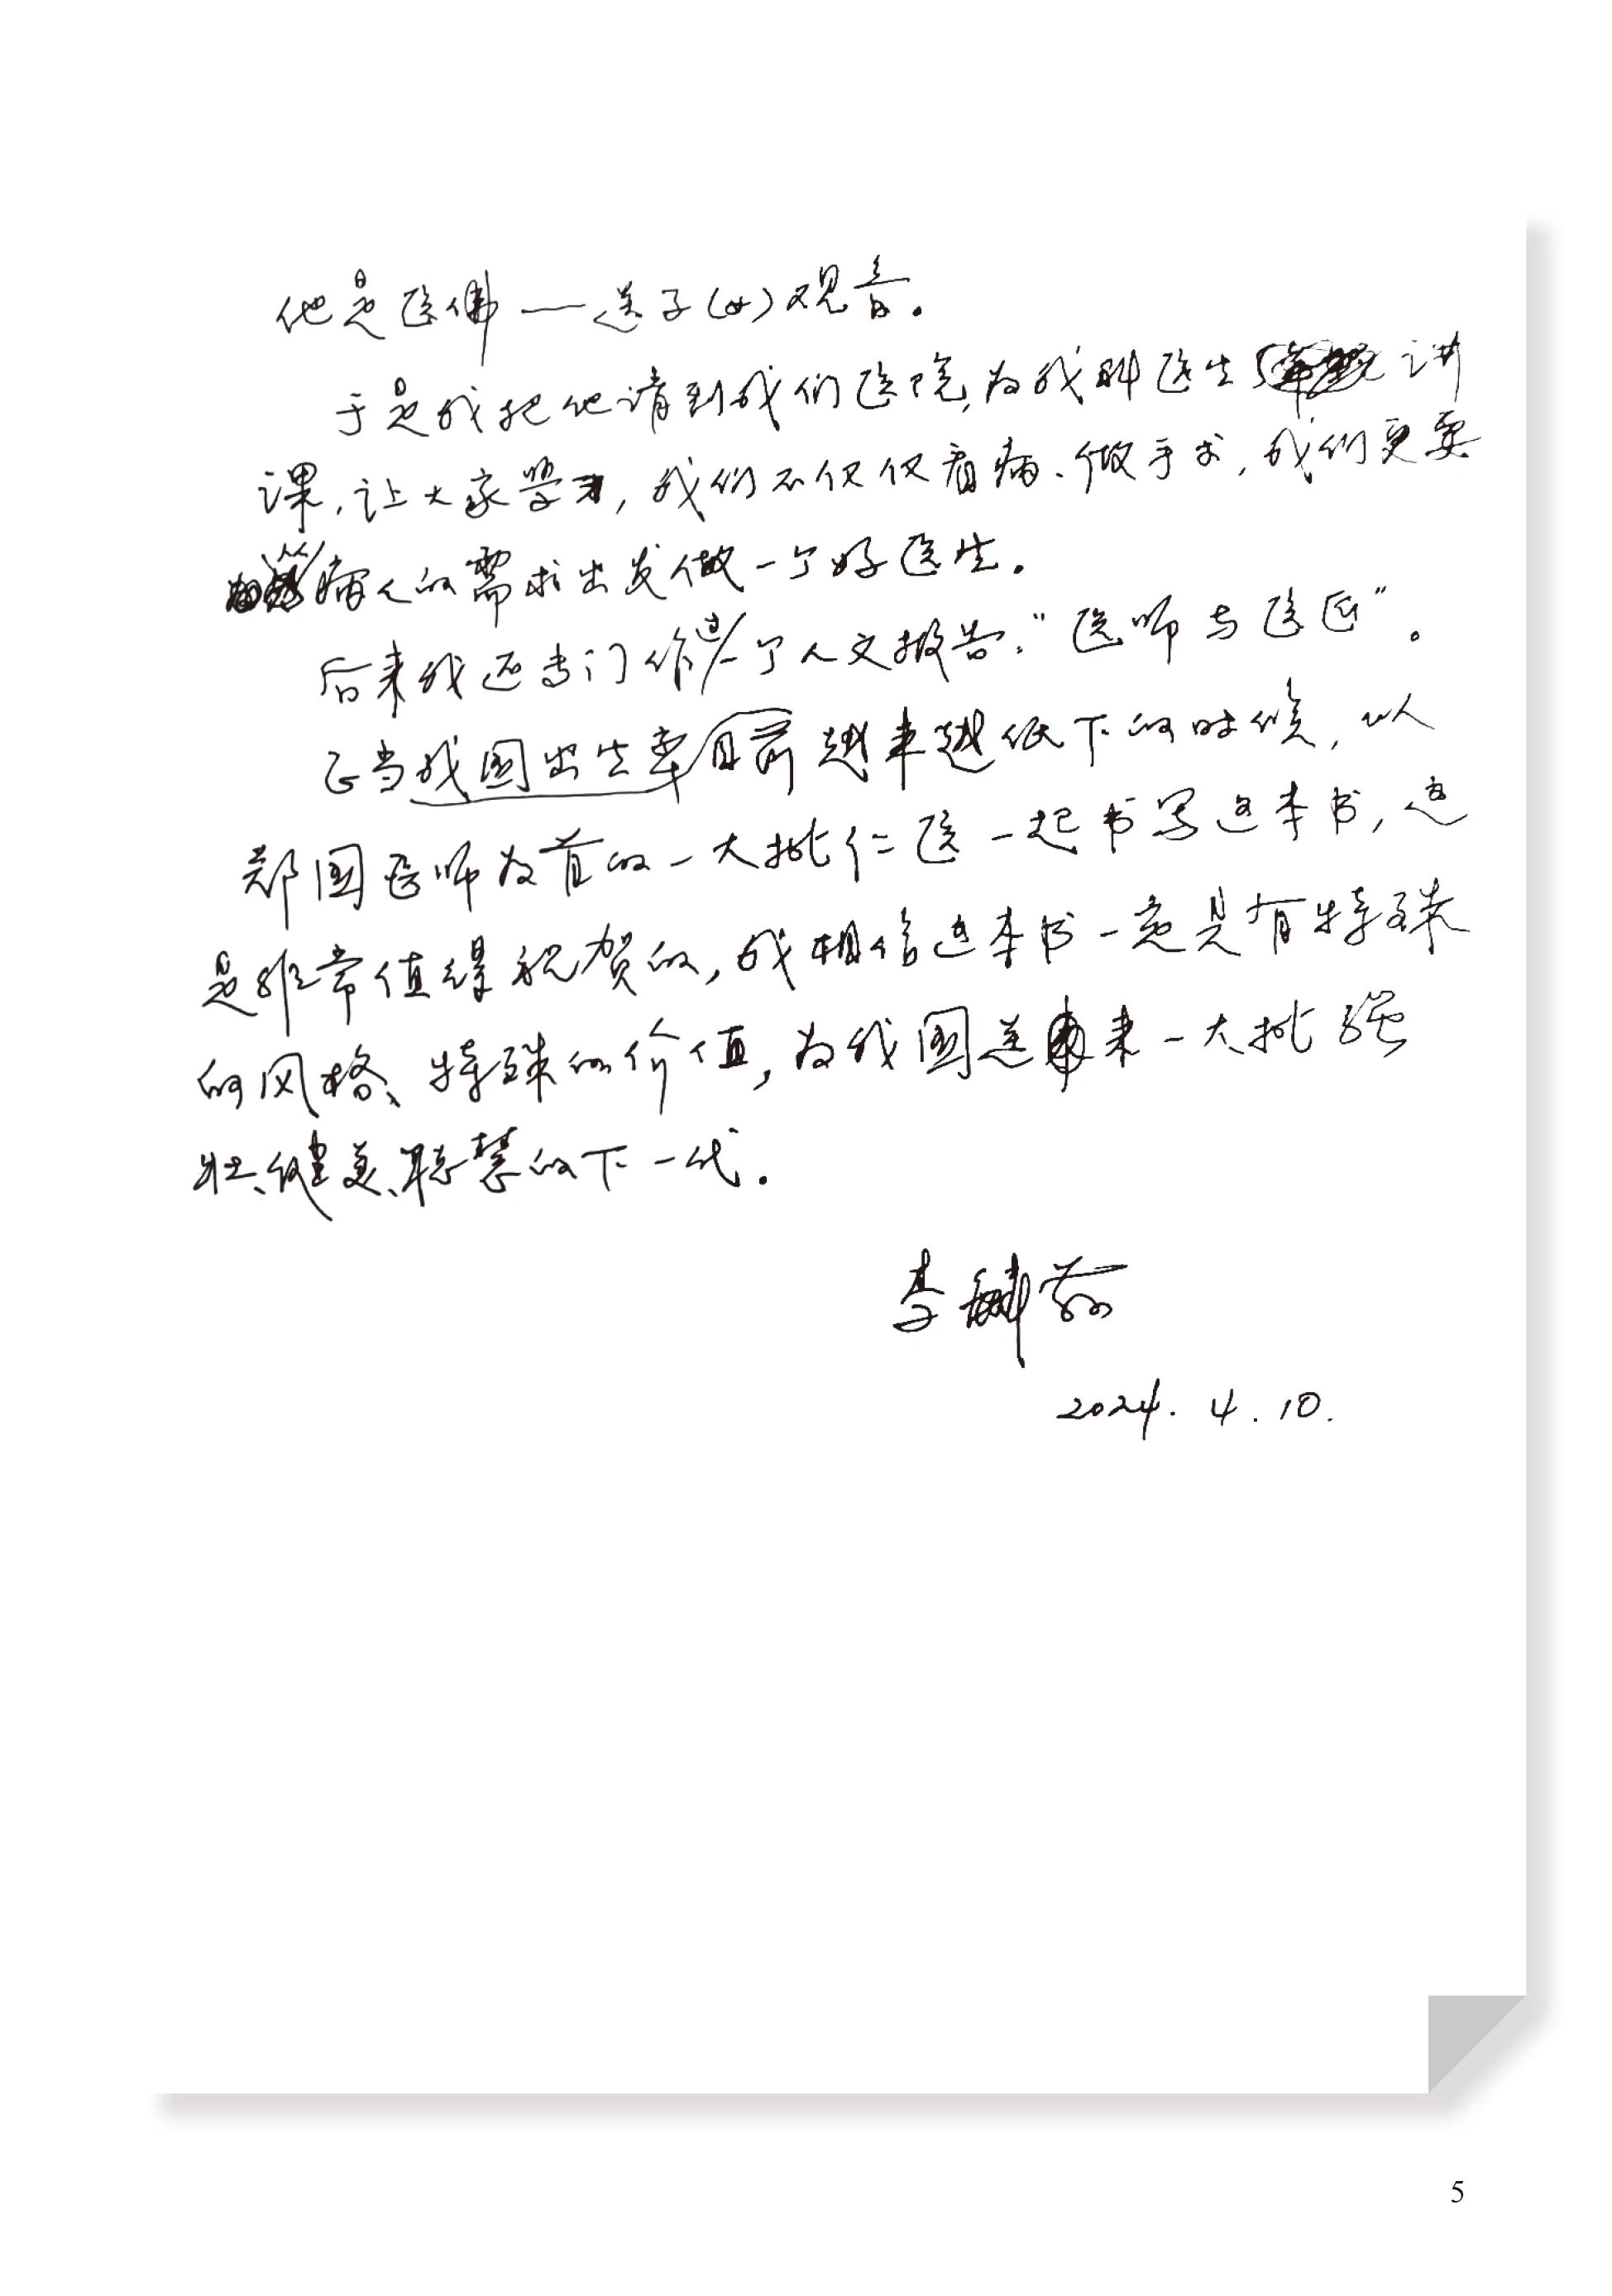 他是医佛——送子(女)观音。
于是我把他请到我们医院,为我科医生讲
课,让大家学习,我们不仅仅看病、做手术,我们更要
从病人的需求出发做一个好医生。
后来我还专门作过一个人文报告:“医师与医匠”。
正当我国出生率目前越来越低下的时候,以
郑国医师为首的一大批仁医一起书写这本书,这
是非常值得祝贺的,我相信这本书一定是有特殊
的风格、特殊的价值,为我国送来一大批强
壮、健美、聪慧的下一代。
李
2024.4.10.
5